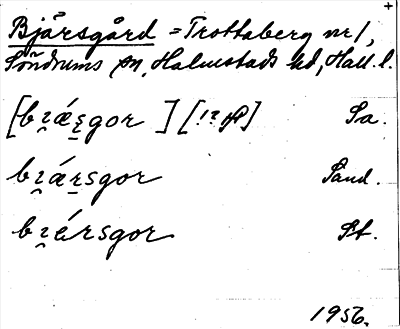 +
Bjärsgård = Trottaberg nr 1,
Söndrums sn, Halmstads hd, Hall. l.
[bɪ̯ǽr̤gor ] [!? ] Sa.
bɪ̯ǽr̤sgor Sand.
bɪ̯érsgor St.
1956.